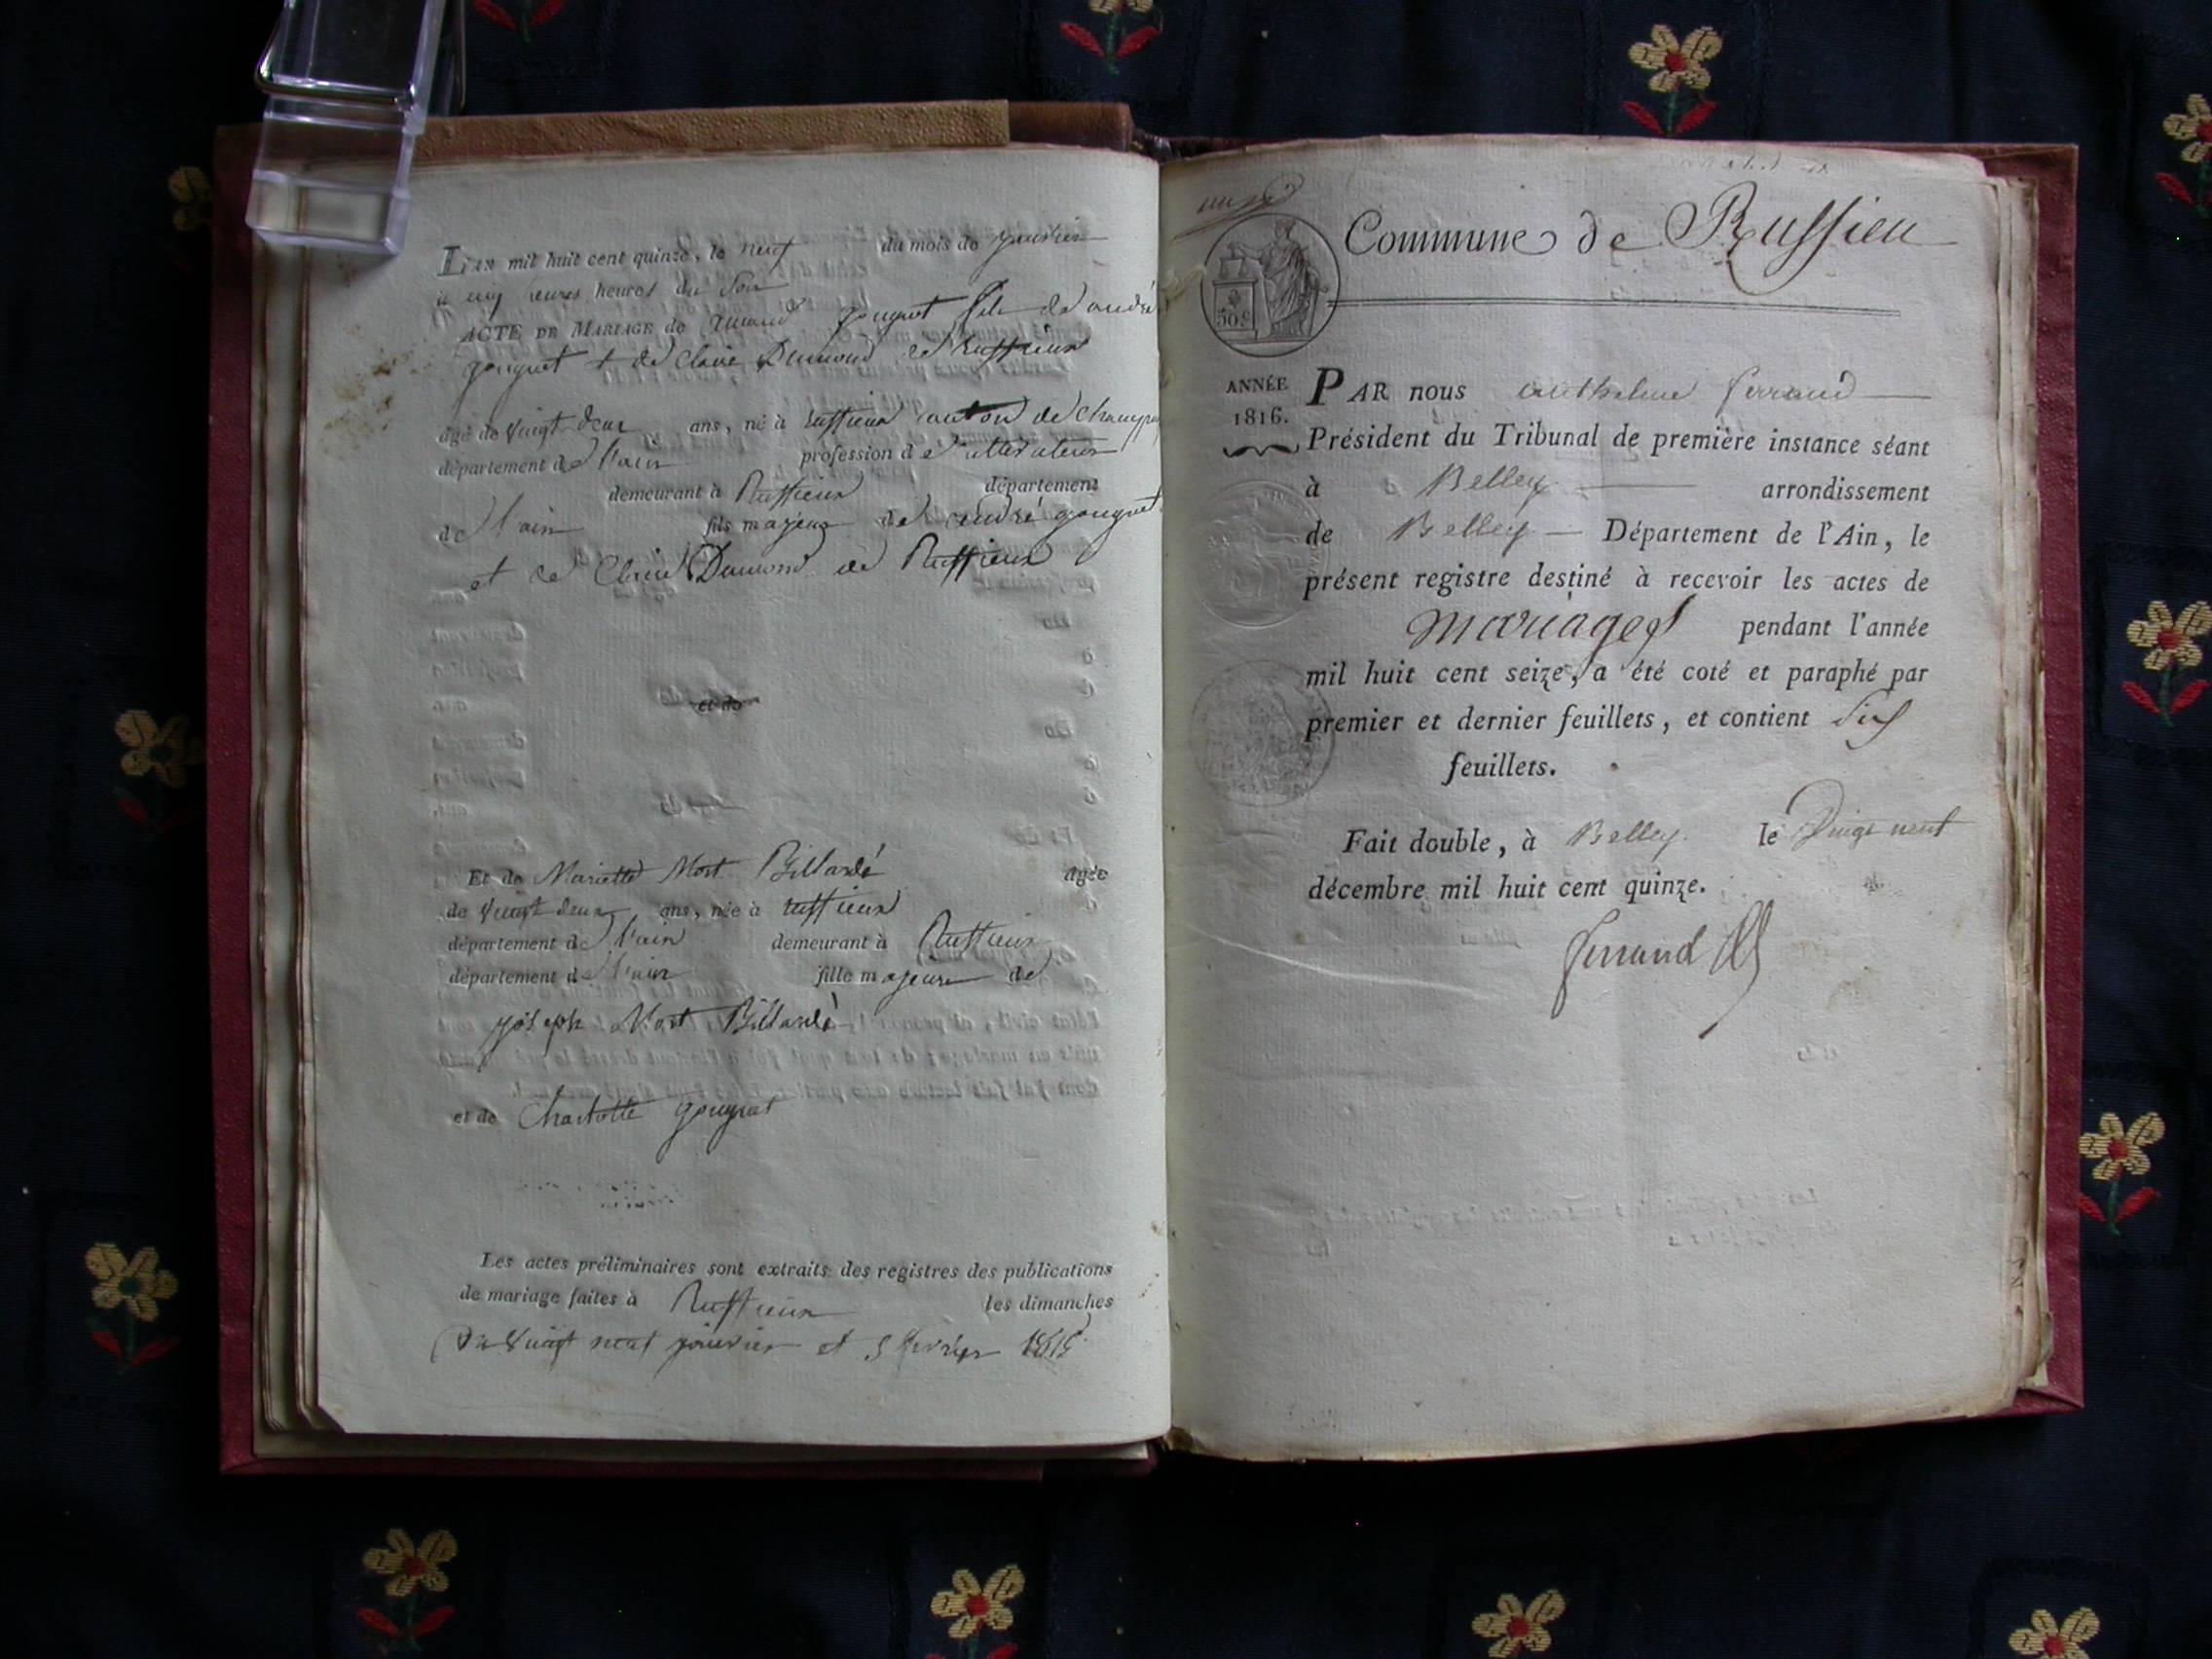 L'AN mil huit cent quinze, le neuf du mois de janvier
à cinq heures heures du Soir
ACTE DE MARIAGE de gouguet fils de andré
gouguet & de Claire Dumond de Ruffieux
âgé de vingt deux ans, né à ruffieux canton de champ
département de l'ain profession de Cultivateur
demeurant à Ruffieux département
de l'ain fils majeur de andré gouguet
et de Claire Dumond de Ruffieux
et de
Et de Mariette Mort Billardé âgée
de vingt deux ans, née à ruffieux
département de l'ain demeurant à Ruffieux
département de l'ain fille majeure de
joseph Mort Billardé
et de Charlotte gouguet
Les actes préliminaires sont extraits des registres des publications
de mariage faites à Ruffieux les dimanches
Du vingt neuf janvier et 5 février 1815
Commune de Ruffieu
50 c
ANNÉE
1816.
PAR nous anthelme ferrand
Président du Tribunal de première instance séant
à Belley arrondissement
de Belley Département de l'Ain, le
présent registre destiné à recevoir les actes de
mariages pendant l'année
mil huit cent seize, a été coté et paraphé par
premier et dernier feuillets, et contient Six
feuillets.
Fait double, à Belley le Vingt neuf
décembre mil huit cent quinze.
ferrand